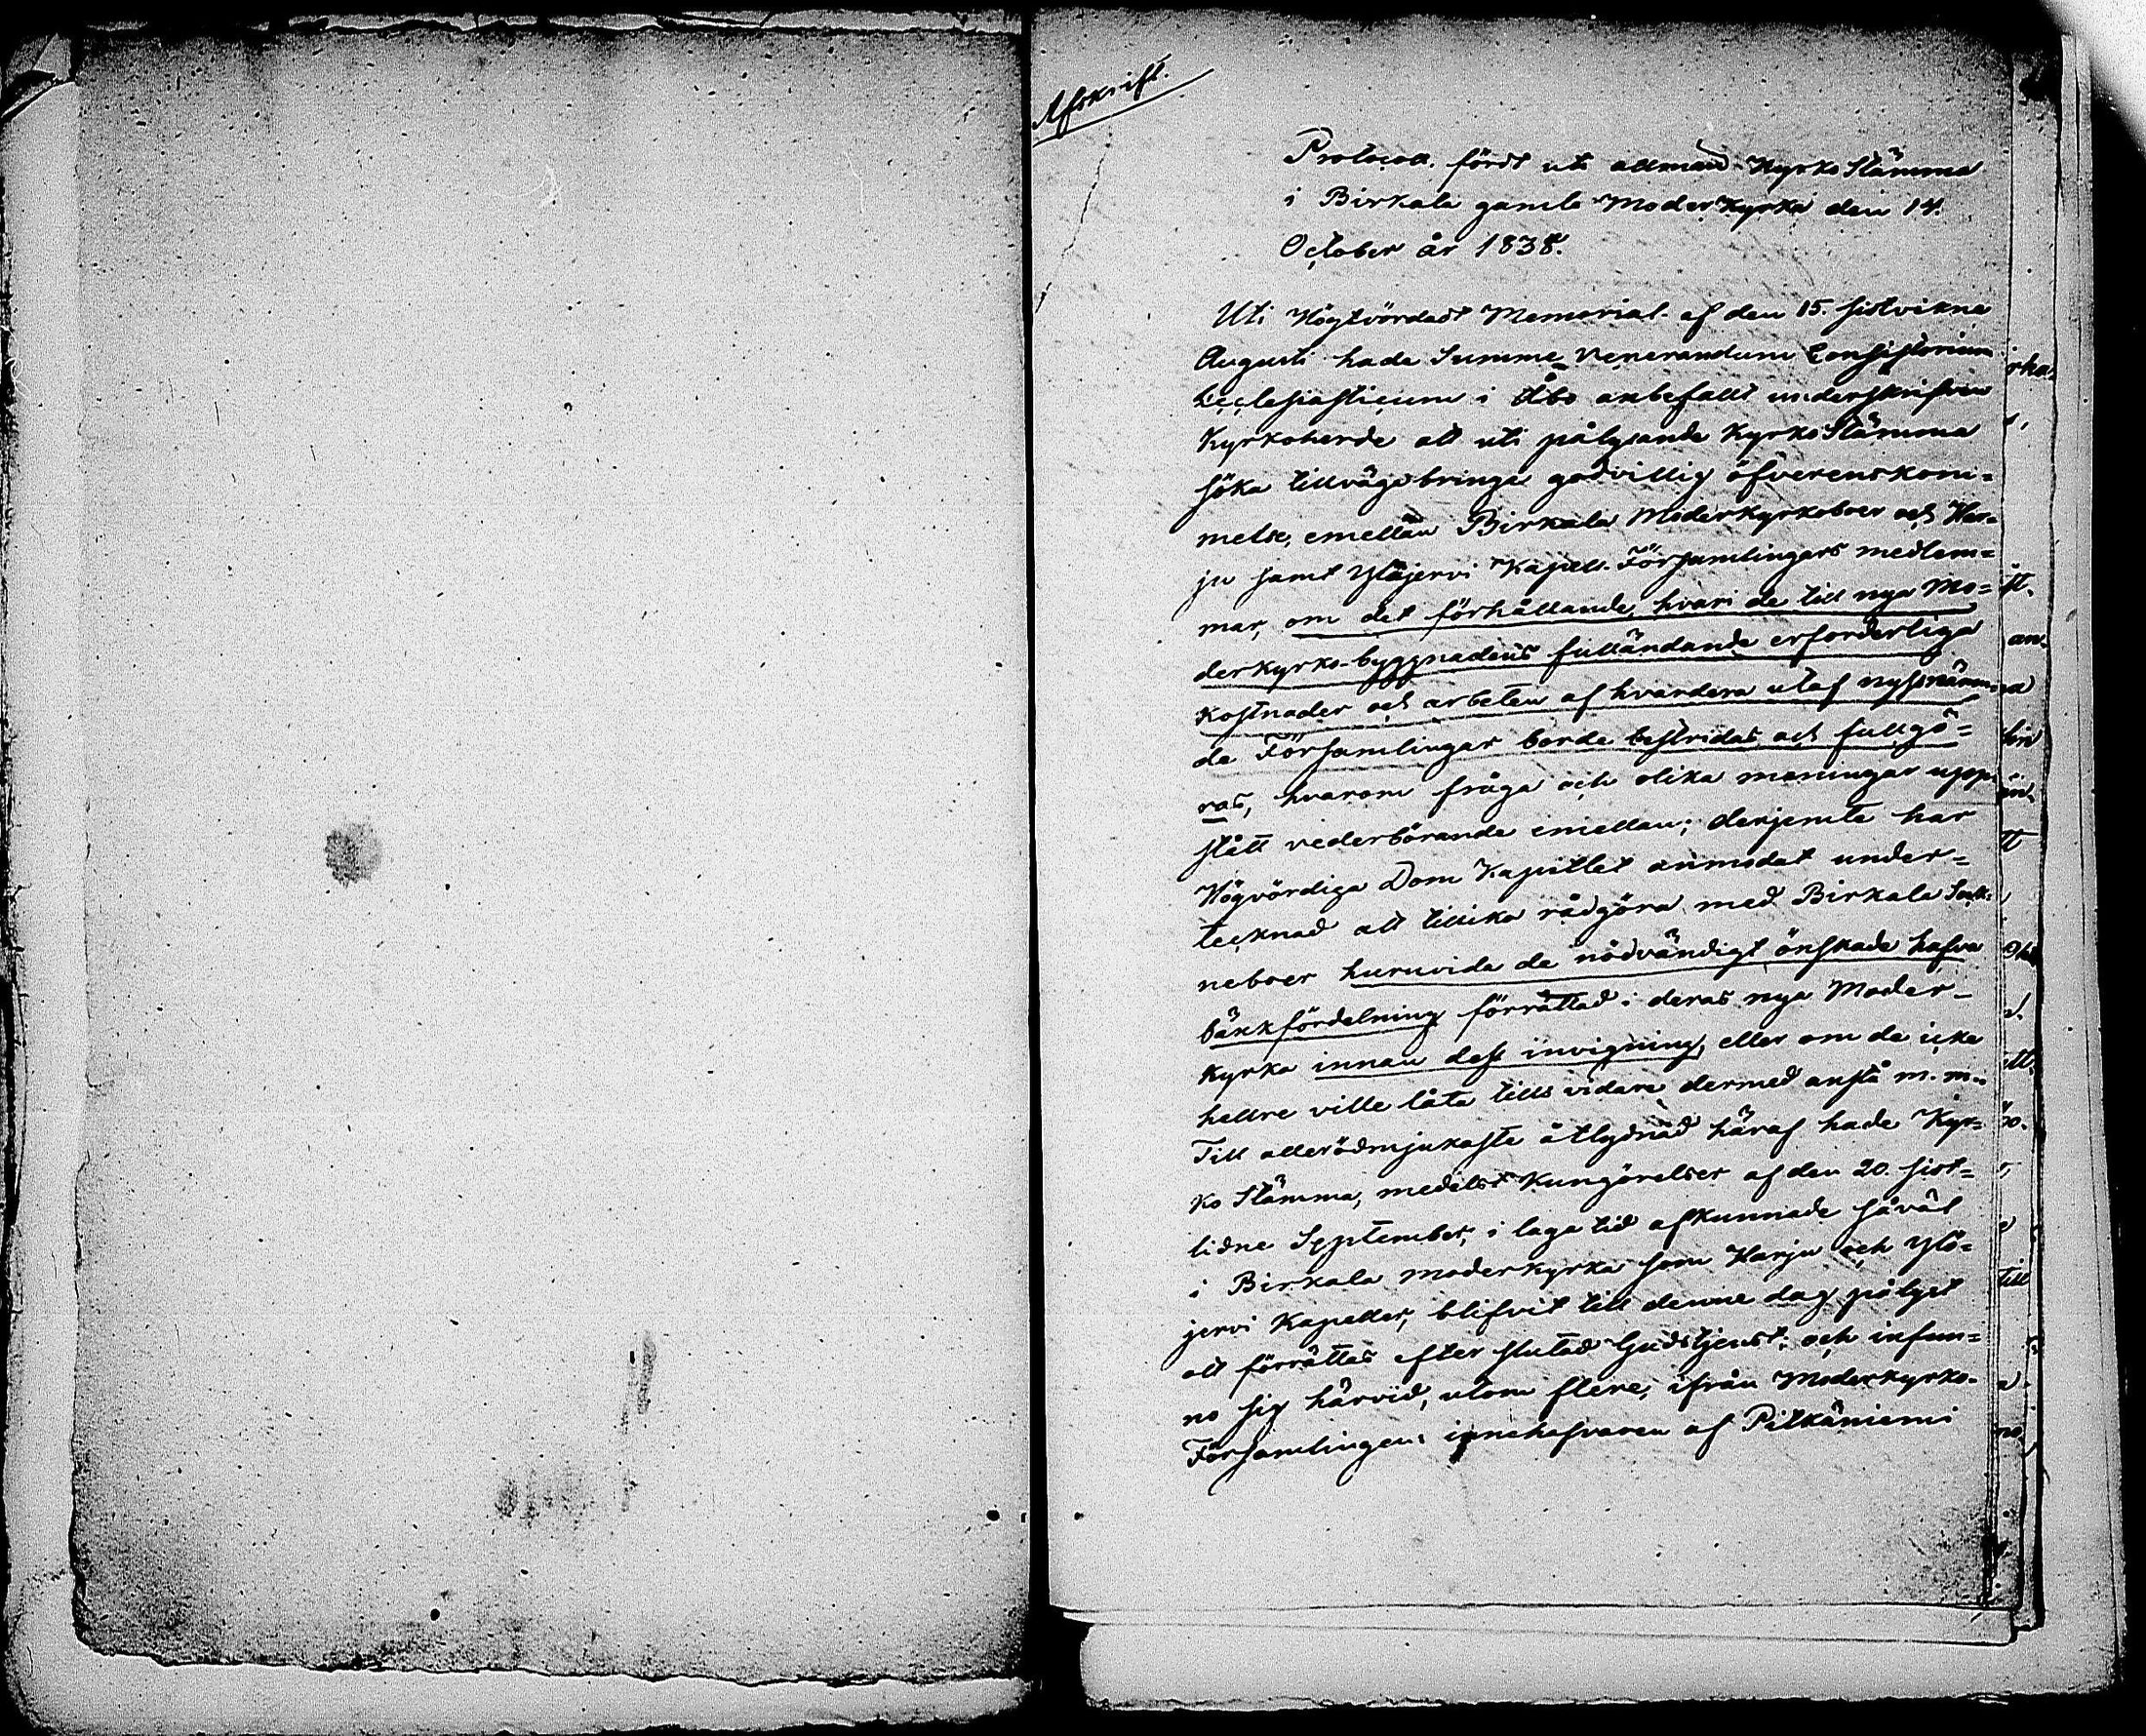 Afskrift.
Protocoll fördt uti allmänd Kyrko Stämma
i Birkala gamla Moder Kyrka den 14.
October år 1838.
Uti Högtvördadt Memorial af den 15. sistvikne
Augusti hade Summe Venerandum Consistorium
Ecclesiasticum i Åbo anbefallt underskrifven
Kyrkoherde att uti pålysande Kyrko Stämma
söka tillvägabringa godvillig öfverenskom=
melse, emellan Birkala Moderkyrkoboer och Har=
ju samt Ylöjervi Kapell-Församlingars medlem=
mar, om det förhållande, hvari de till nya Mo=
derkyrko-byggnadens fulländande erforderliga
kostnader och arbeten af hvardera utaf nyssnämn=
da Församlingar borde bestridas och fullgö=
ras, hvarom fråga och olika meningar upp=
stått vederbörande emellan; derjemte har
Högvördiga Dom Kapitlet anmodat under=
tecknad att tillika rådgöra med Birkala Sock=
neboer huruvida de nödvändigt önskade hafva
bänkfördelning förrättad i deras nya Moder=
kyrka innan dess invigning, eller om de icke
hellre ville låta tills vidare dermed anstå m. m.
Till allerödmjukaste åtlydnad häraf hade Kyr=
ko Stämma, medelst Kungörelser af den 20. sist=
lidne September, i laga tid afkunnade såväl
i Birkala moderkyrka som Harju och Ylö=
jervi Kapeller, blifvit till denne dag pålyst
att förrättas efter slutad Gudstjenst; och infun=
no sig härvid, utom flere, ifrån Moderkyrko-
Församlingen: innehafvaren af Pitkäniemi